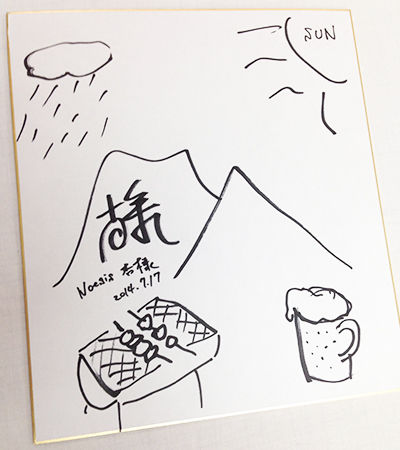 SUN
Noesis 様
2014.7.17